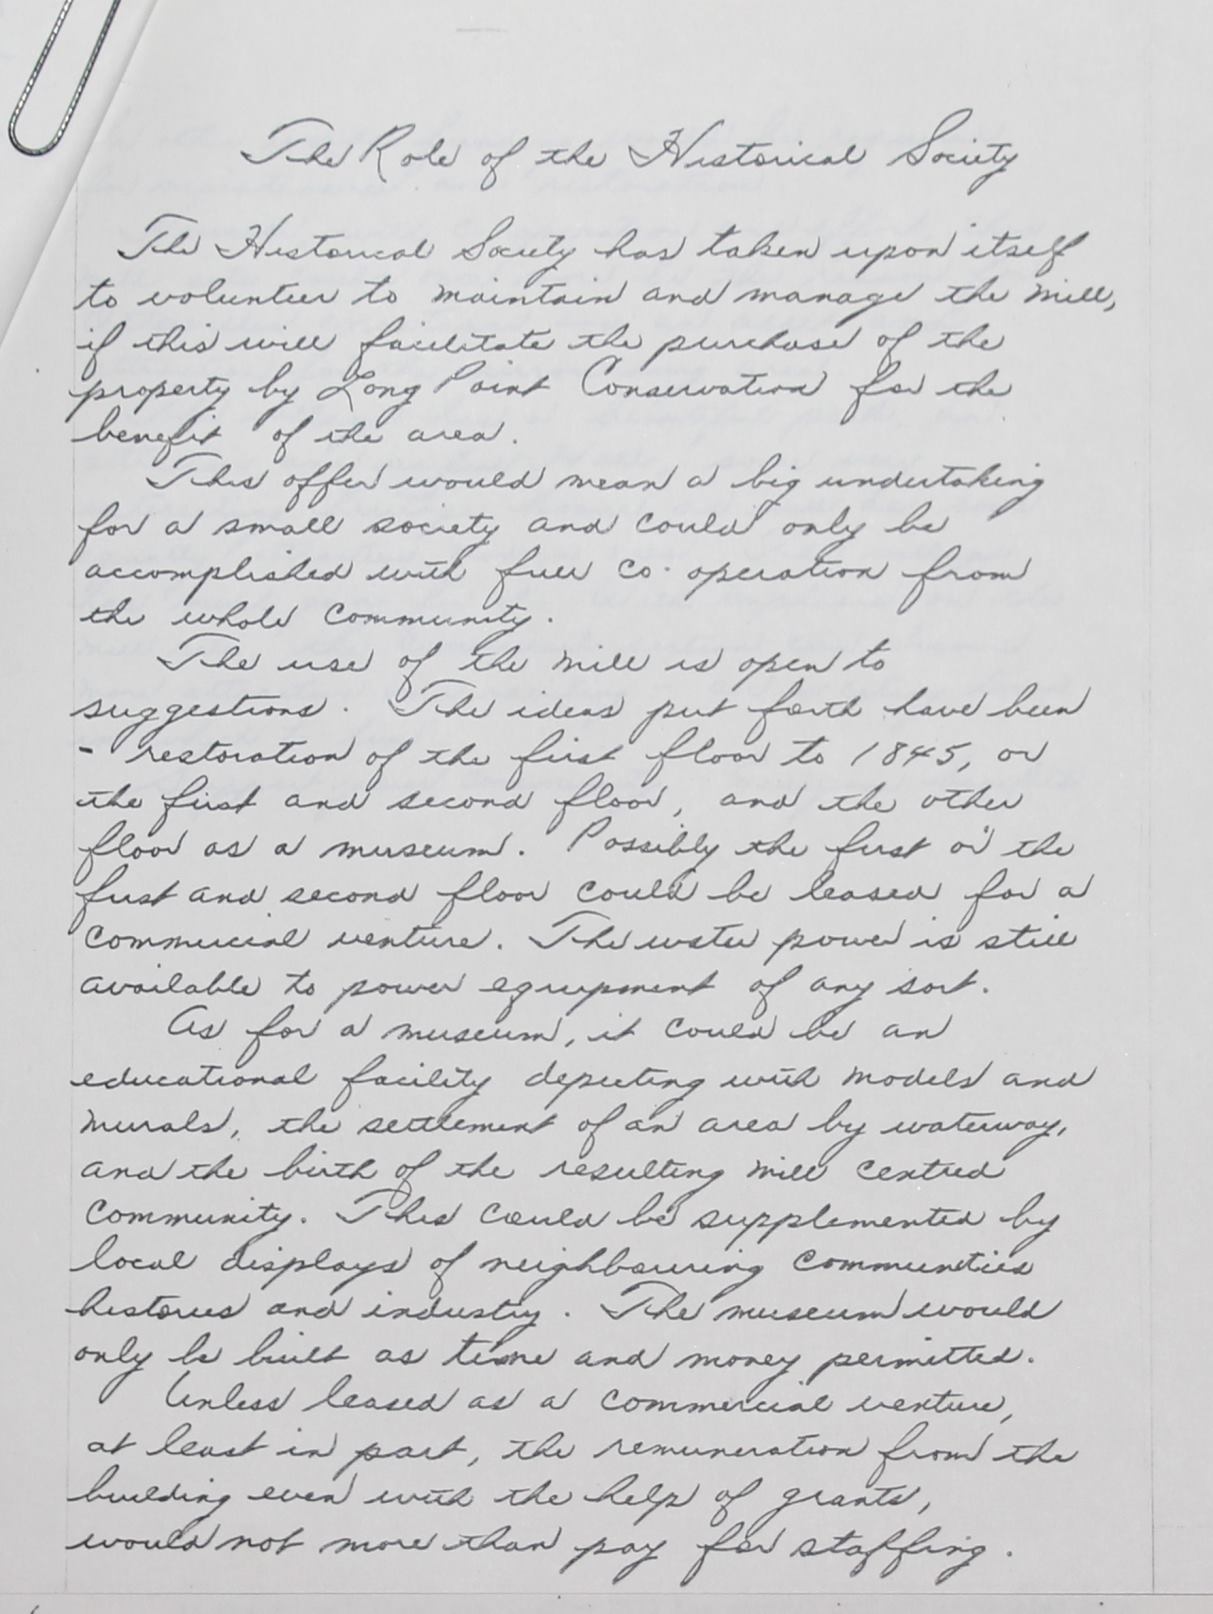 The Role of the Historical Society
The Historical Society has taken upon itself
to volunteer to maintain and manage the mill,
if this will facilitate the purchase of the
property by Long Point Conservation for the
benefit of the area.
This offer would mean a big undertaking
for a small society and could only be
accomplished with full co-operation from
the whole community.
The use of the mill is open to
suggestions. The ideas put forth have been
- restoration of the first floor to 1845, or
the first and second floor, and the other
floor as a museum. Possibly the first or the
first and second floor could be leased for a
commercial venture. The water power is still
available to power equipment of any sort.
As for a museum, it could be an
educational facility depicting with models and
murals, the settlement of an area by waterway,
and the birth of the resulting mill centred
community. This could be supplemented by
local displays of neighbouring communities
histories and industry. The museum would
only be built as time and money permitted.
Unless leased as a commercial venture,
at least in part, the remuneration from the
building even with the help of grants,
would not more than pay for staffing.